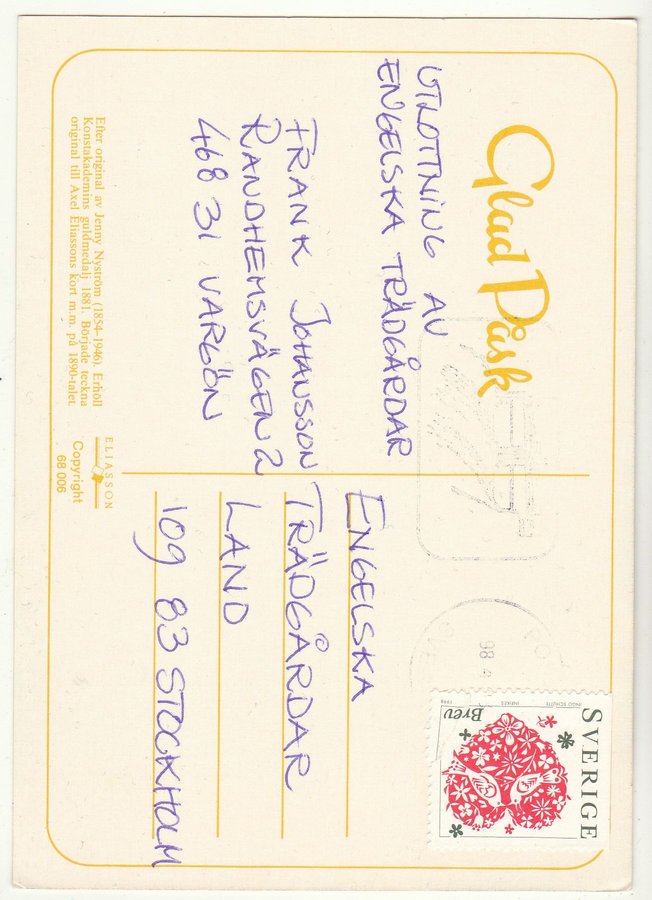 Glad Påsk
UTLOTTNING AV
ENGELSKA TRÄDGÅRDAR
FRANK JOHANSSON
RANDHEMSVÄGEN 2
468 31 VARGÖN
Efter original av Jenny Nyström (1854-1946). Erhöll
Konstakademins guldmedalj 1881. Började teckna
original till Axel Eliassons kort m.m. på 1890-talet.
ELIASSON
Copyright
68 006
SVERIGE
Brev
INGO SCHÜTTE
1998
98
ENGELSKA
TRÄDGÅRDAR
LAND
109 83 STOCKHOLM